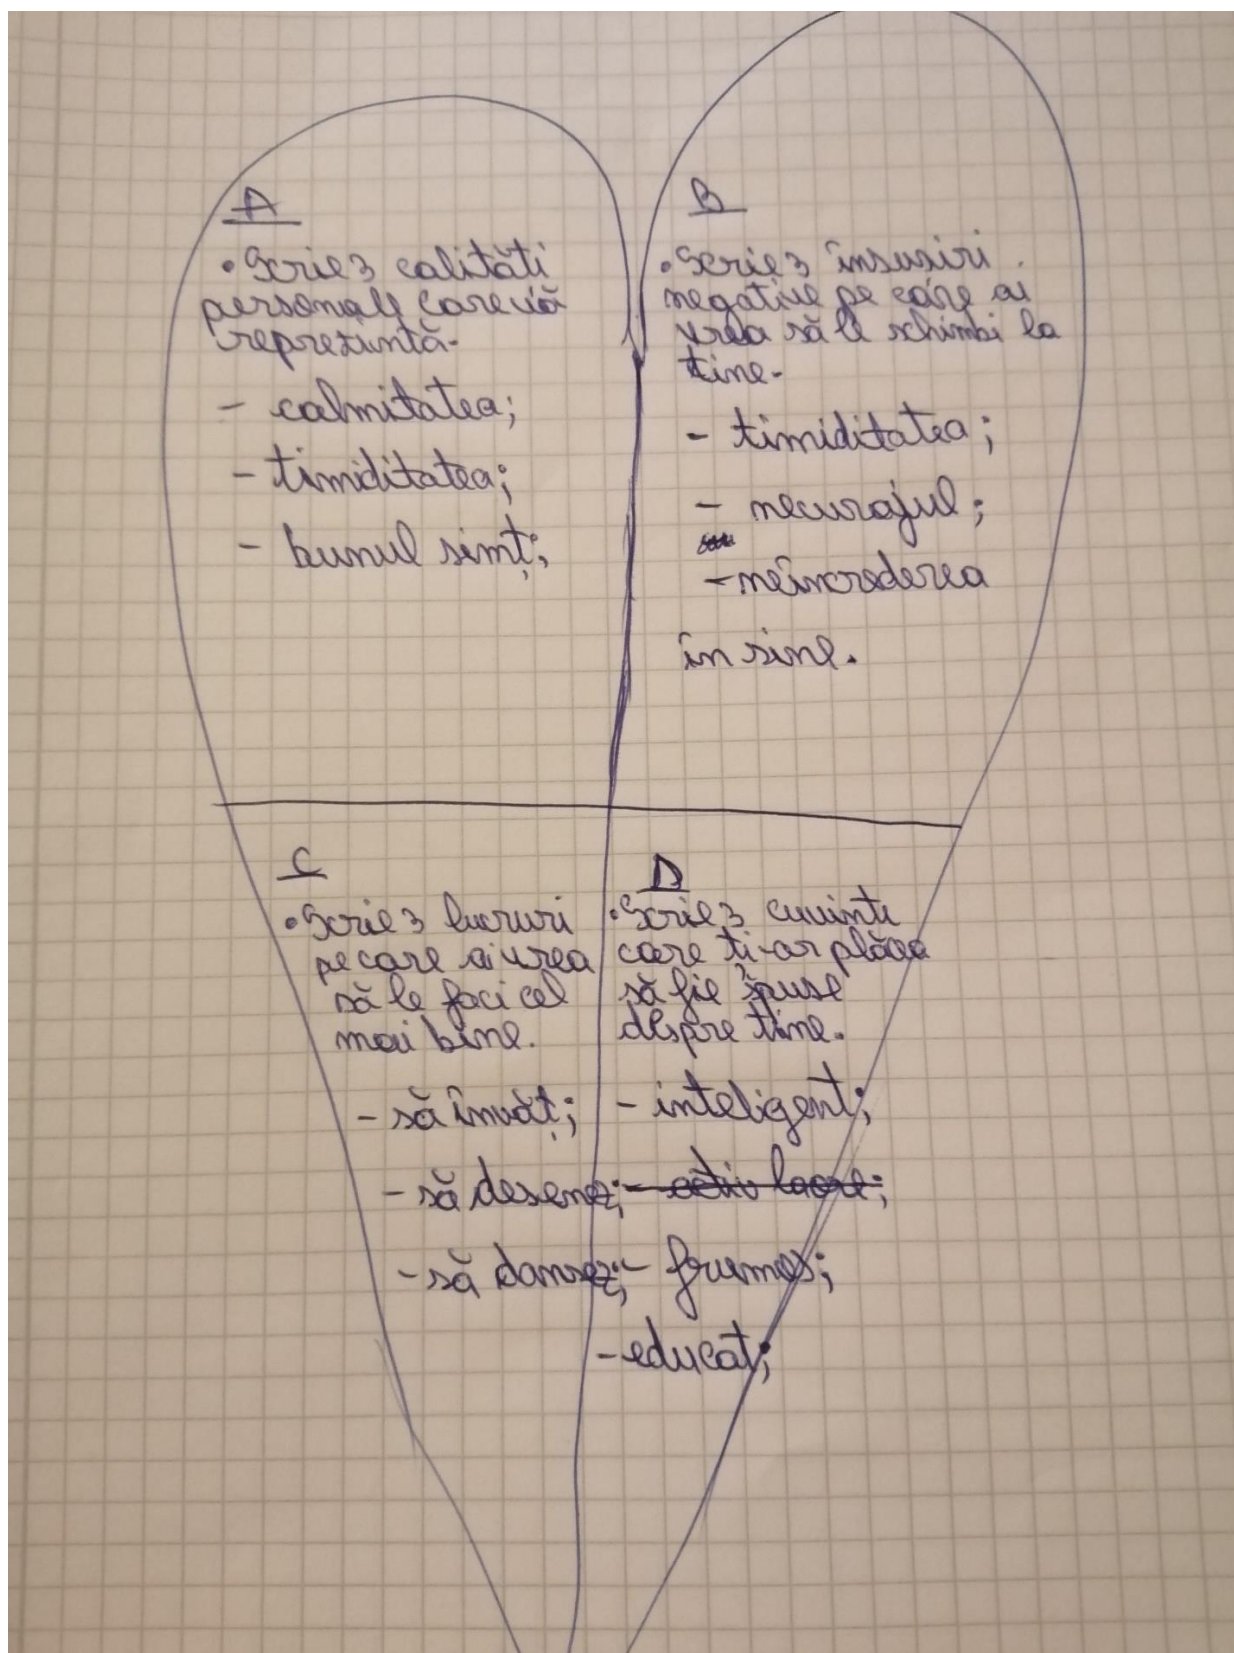 A
• Scrie 3 calități
personale care vă
reprezintă.
- calmitatea;
- timiditatea;
- bunul simț;
B
• Scrie 3 însușiri
negative pe care ai
vrea să le schimbi la
tine.
- timiditatea;
- necurajul;
- neîncrederea
în sine.
C
• Scrie 3 lucruri
pe care ai vrea
să le faci cel
mai bine.
- să învăț;
- să desenez;
- să dansez;
D
• Scrie 3 cuvinte
care ti-ar plăcea
să fie spuse
despre tine.
- inteligent;
- activ la ore;
- frumos;
- educat;